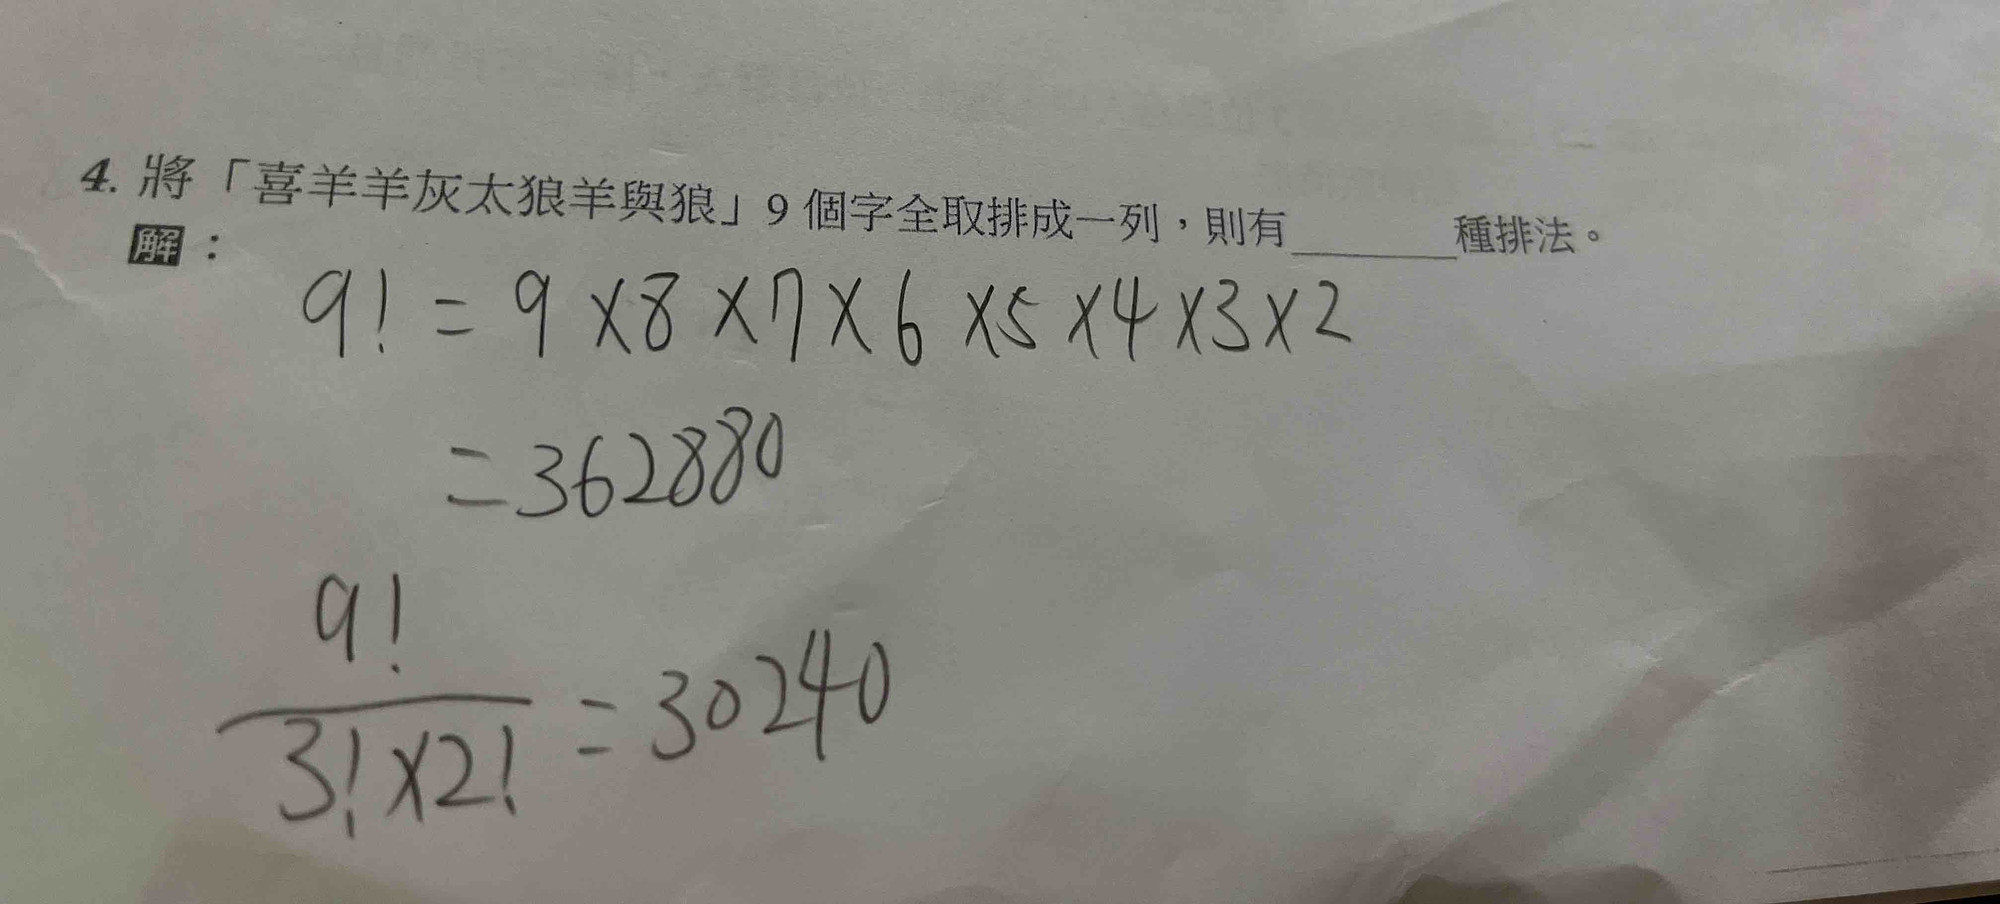 4. 將「喜羊羊灰太狼羊與狼」9 個字全取排成一列，則有______種排法。
解：
9! = 9 × 8 × 7 × 6 × 5 × 4 × 3 × 2
= 362880
9!
3! × 2! = 30240